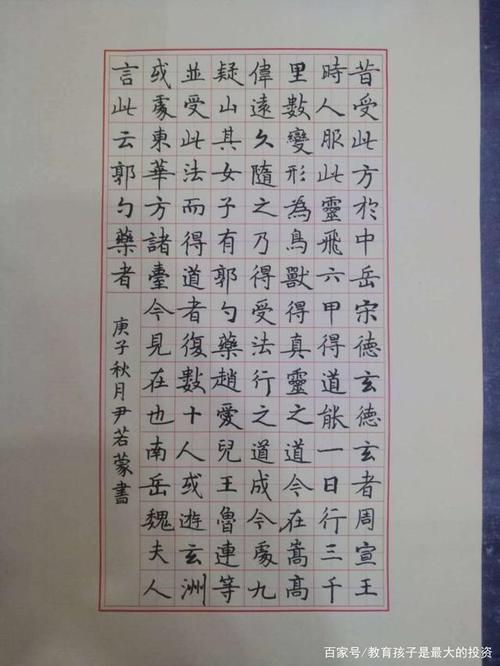 昔受此方於中岳宋德玄德玄者周宣王
時人服此靈飛六甲得道能一日行三千
里數變形為鳥獸得真靈之道今在嵩高
偉遠久隨之乃得受法行之道成今處九
疑山其女子有郭勺藥趙愛兒王魯連等
並受此法而得道者復數十人或遊玄洲
或處東華方諸臺今見在也南岳魏夫人
言此云郭勺藥者
庚子秋月尹若蒙書
百家号/教育孩子是最大的投资